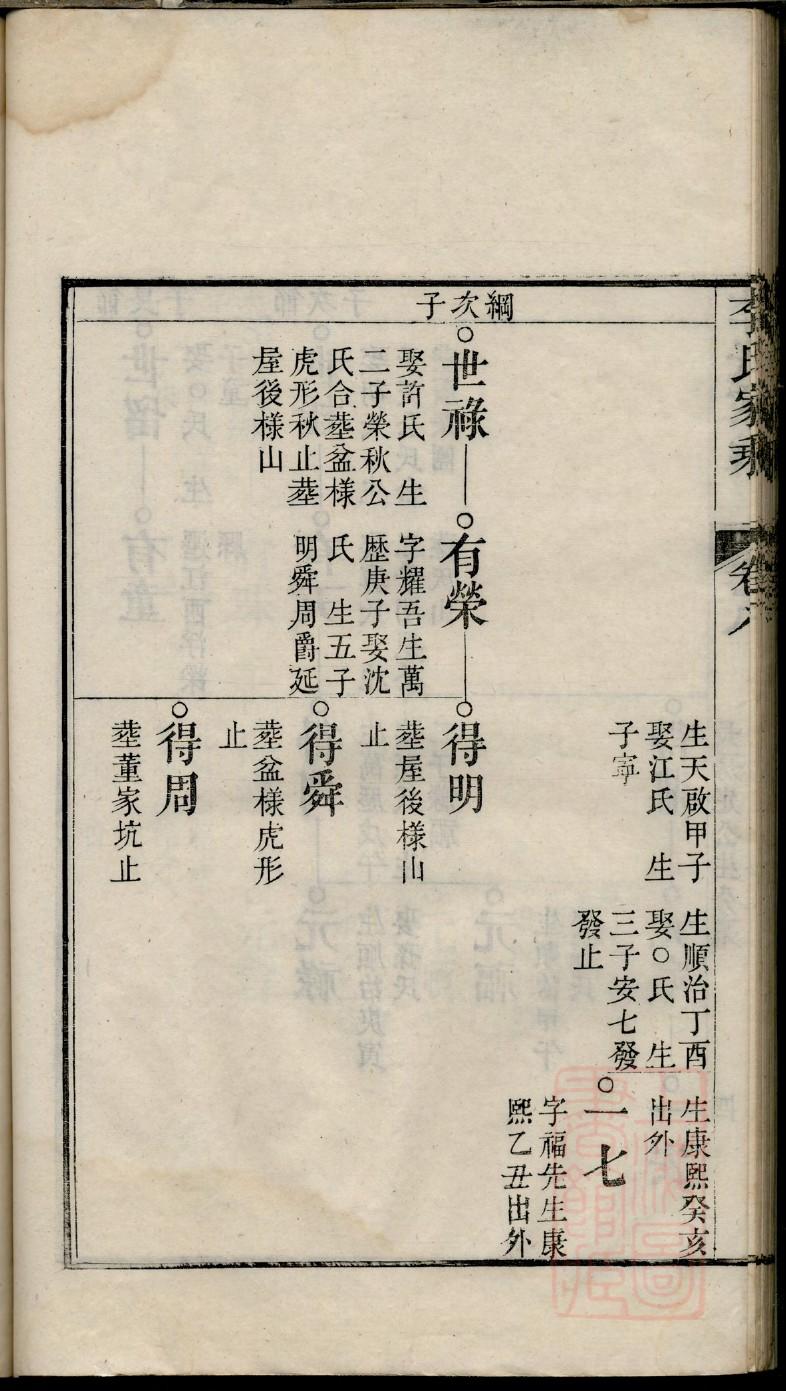 李氏家乘
卷八
生天啟甲子
娶江氏 生
子寧
生順治丁酉
娶○氏 生
三子安七發
發止
生康熙癸亥
出外
○一七
字福先生康
熙乙丑出外
綱次子
○世祿
娶許氏 生
二子榮秋公
氏合塟盆様
虎形秋止塟
屋後様山
○有榮
字耀吾生萬
歷庚子娶沈
氏 生五子
明舜周爵延
○得明
塟屋後様山
止
○得舜
塟盆様虎形
止
○得周
塟董家坑止